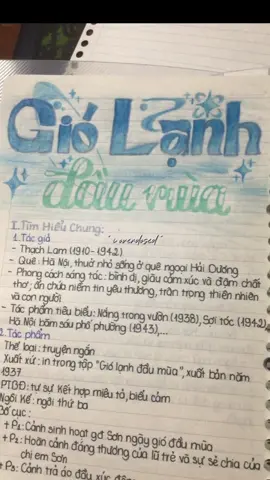 Gió Lạnh
đầu mùa
I. Tìm Hiểu Chung:
1. Tác giả
- Thạch Lam (1910-1942)
- Quê: Hà Nội, thuở nhỏ sống ở quê ngoại Hải Dương
- Phong cách sáng tác: bình dị, giàu cảm xúc và đậm chất
thơ; ẩn chứa niềm tin yêu thương, trân trọng thiên nhiên
và con người
- Tác phẩm tiêu biểu: Nắng trong vườn (1938), Sợi tóc (1942),
Hà Nội băm sáu phố phường (1943),...
2. Tác phẩm
Thể loại: truyện ngắn
Xuất xứ: in trong tập "Gió lạnh đầu mùa", xuất bản năm
1937
PTBĐ: tự sự. Kết hợp miêu tả, biểu cảm
Ngôi Kể: ngôi thứ ba
Bố cục:
+ P1: Cảnh sinh hoạt gđ Sơn ngày gió đầu mùa
+ P2: Hoàn cảnh đáng thương của lũ trẻ và sự sẻ chia của
chị em Sơn
+ P3: Cảnh trả áo đầy xúc